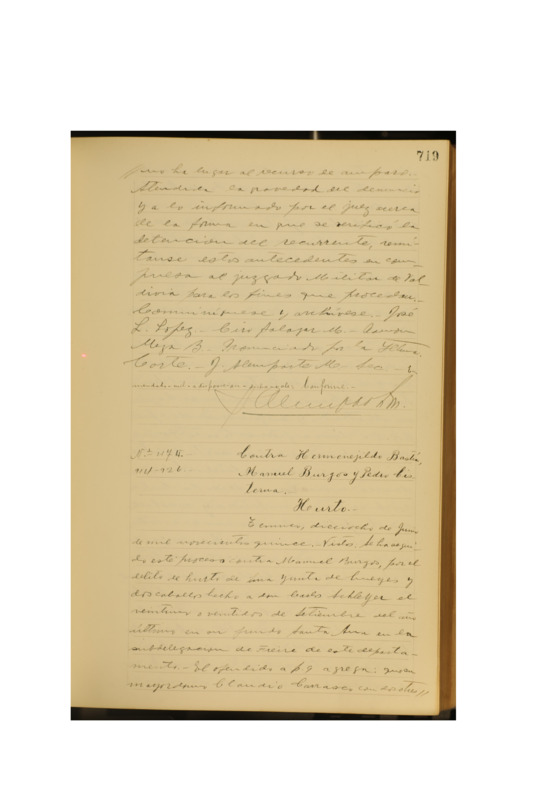 719
ha lugar al recurso de amparo.-
Atendida la gravedad del denuncio
y a lo informado por el juez acerca
de la forma en que se verificó la
detencion del recurrente, remi-
tanse estos antecedentes en com-
pulsa al juzgado Militar de Val
divia para los fines que procedan.-
Comuniquese y archivese.- José
L. Lopez.- Ciro Salazar M.- Ramon
Meza B.- Pronunciado por la Iltma.
Corte.- J. Alemparte M. Sec.-
Conforme.-
Contra Hermenegildo Bastía,
Manuel Burgos y Pedro
Hurto.-
Temuco, dieciocho de Junio
de mil novecientos quince.- Vistos: Se ha segui-
do este proceso contra Manuel Burgos, por el
delito de hurto de una yunta de bueyes y
dos caballos hecho a don Carlos Schleyer el
veintiuno o veintidos de Setiembre del año
último en su fundo Santa Ana en la
subdelegacion de Freire de este departa-
mento.- El ofendido a f. 9 agrega: que su
mayordomo Claudio Carrasco con